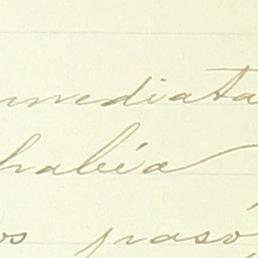 nmediata
habéa
os pasó